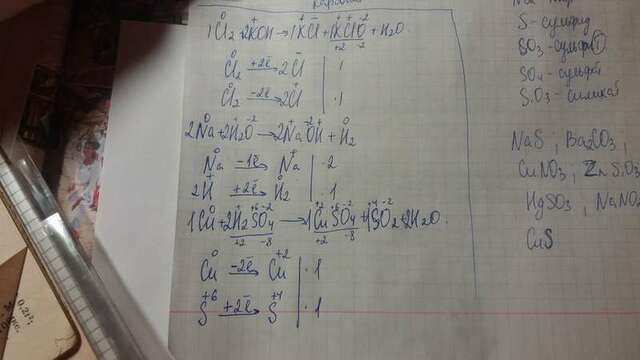 1Cl₂+2KOH→1KCl+1KClO+H₂O
Cl₂ +2ē→ 2Cl | 1
Cl₂ -2ē→ 2Cl | 1
2Na+2H₂O→2NaOH+H₂
Na -1ē→ Na | ·2
2H +2ē→ H₂ | ·1
1Cu+2H₂SO₄→1CuSO₄+1SO₂+2H₂O
Cu -2ē→ Cu | ·1
S +2ē→ S | ·1
S-сульфид
SO₃-сульфи
SO₄-сульфат
SiO₃-силикат
NaS; Ba₂CO₃;
CuNO₃; ZnSiO₃
HgSO₃; NaNO₂
CuS